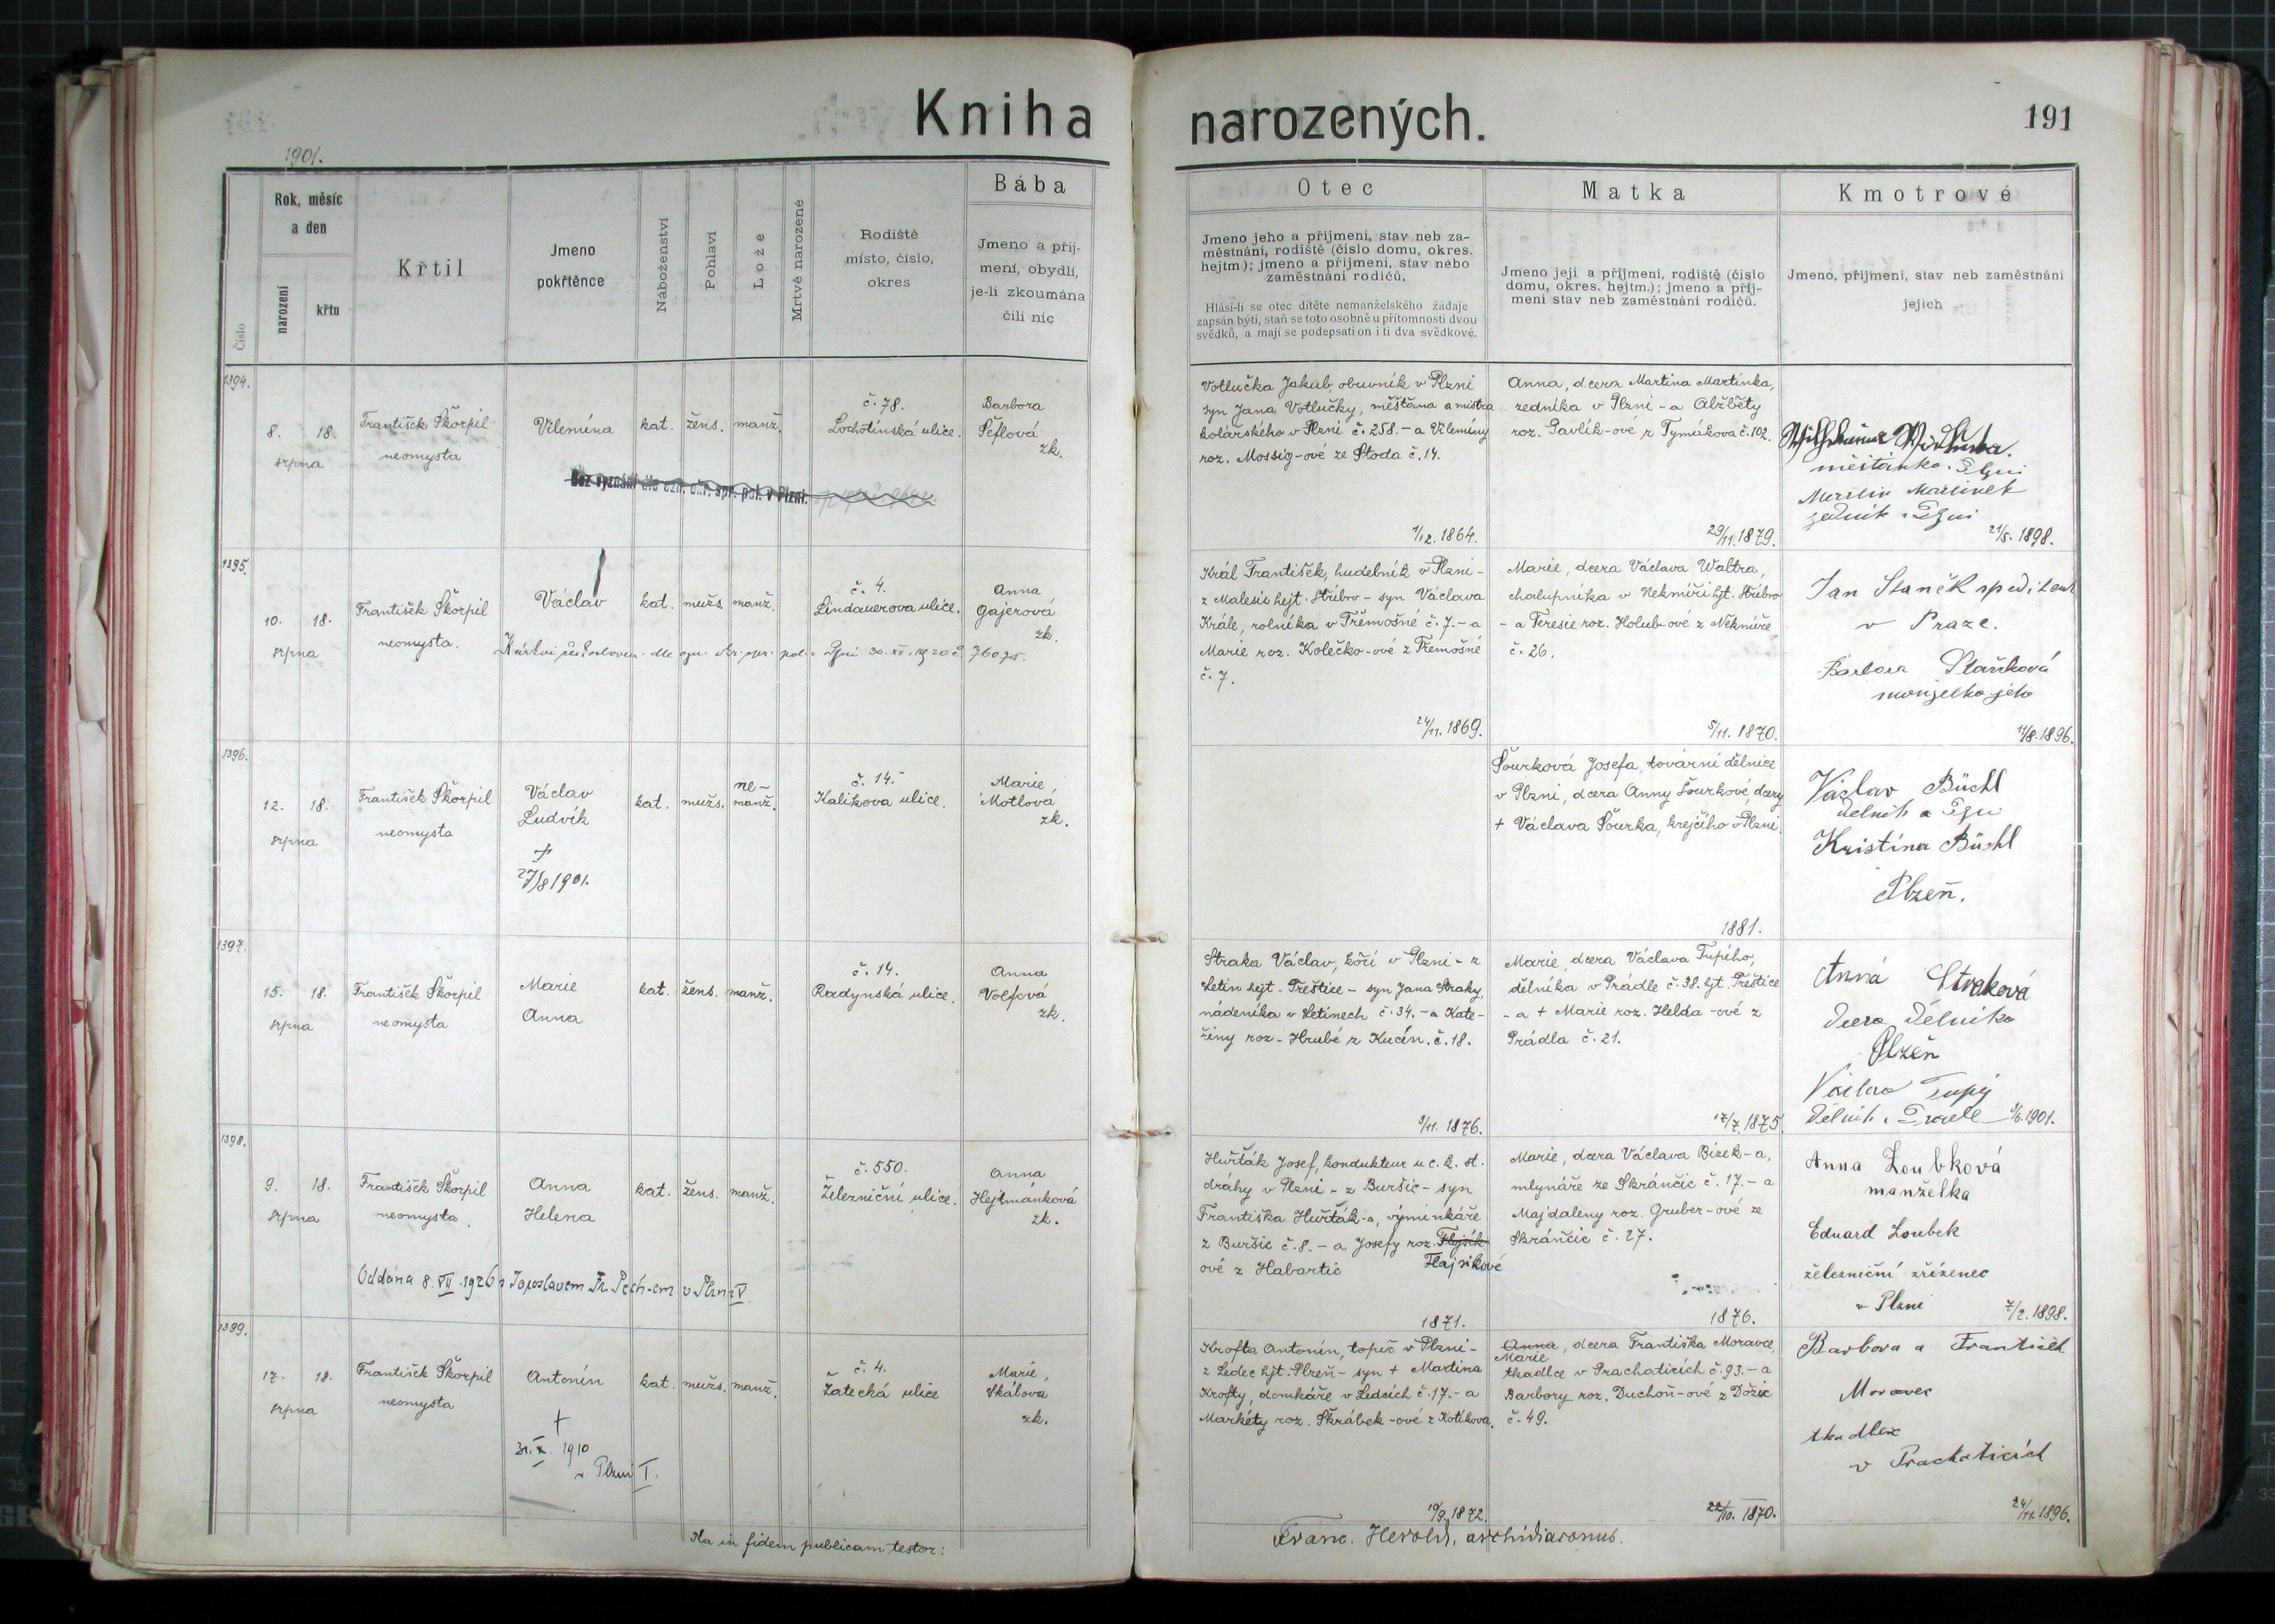 Kniha narozených.
191
1901.
Číslo
Rok, měsíc
a den
narození
křtu
Křtil
Jmeno
pokřtěnce
Náboženství
Pohlaví
Lože
Mrtvě narozené
Rodiště
místo, číslo,
okres
Bába
Jmeno a příj-
mení, obydlí,
je-li zkoumána
čili nic
Otec
Jmeno jeho a příjmení, stav neb za-
městnání, rodiště (číslo domu, okres.
hejtm.); jmeno a příjmení, stav nebo
zaměstnání rodičů.
Hlásí-li se otec dítěte nemanželského žádaje
zapsán býti, staň se toto osobně u přítomnosti dvou
svědků, a mají se podepsati on i ti dva svědkové.
Matka
Jmeno její a příjmení, rodiště (číslo
domu, okres. hejtm.); jmeno a příj-
mení stav neb zaměstnání rodičů.
Kmotrové
Jmeno, příjmení, stav neb zaměstnání
jejich
1394.
8. 18.
srpna
František Škorpil
neomysta
Vilemína
kat. žens. manž.
č. 78.
Lochotínská ulice.
Barbora
Šeflová
zk.
Bez vyznání dle ozn. okr. spr. pol. v Plzni.
Votlučka Jakub, obuvník v Plzni
syn Jana Votlučky, měšťana a mistra
kolářského v Plzni č. 258. - a Vilemíny
roz. Mossig-ové ze Stoda č. 14.
1/12. 1864.
Anna, dcera Martina Martínka,
zedníka v Plzni - a Alžběty
roz. Pavlík-ové z Tymákova č. 102.
29/11. 1879.
měšťanka. Plzni
Martin Martínek
zedník v Plzni
21/5. 1898.
1395.
10. 18.
srpna
František Škorpil
neomysta.
Václav
kat. mužs. manž.
č. 4.
Lindauerova ulice.
Anna
Gajerová
zk.
Církvi čs. dle ozn. okr. spr. pol. v Plzni 30. XII. 1920 č. 76075.
Král František, hudebník v Plzni -
z Malesic hejt. Stříbro - syn Václava
Krále, rolníka v Třemošné č. 7. - a
Marie roz. Kolečko-ové z Třemošné
č. 7.
24/11. 1869.
Marie, dcera Václava Waltra,
chalupníka v Nekmíři hjt. Stříbro
- a Teresie roz. Holub-ové z Nekmíře
č. 26.
5/11. 1870.
Jan Staněk spediteur
v Praze.
Barbora Staňková
manželka jeho
11/8. 1896.
1396.
12. 18.
srpna
František Škorpil
neomysta
Václav
Ludvík
†
27/8 1901.
kat. mužs. ne-
manž.
č. 14.
Kalikova ulice.
Marie
Motlová
zk.
Šourková Josefa, tovární dělnice
v Plzni, dcera Anny Šourkové, dcery
† Václava Šourka, krejčího v Plzni.
1881.
Václav Büchl
dělník v Plzni
Kristina Büchl
Plzeň.
1397.
15. 18.
srpna
František Škorpil
neomysta
Marie
Anna
kat. žens. manž.
č. 14.
Radynská ulice.
Anna
Volfová
zk.
Straka Václav, kočí v Plzni - z
Letin hejt. Přeštice - syn Jana Straky,
nádeníka v Letinech č. 34. - a Kate-
řiny roz. Hrubé z Kucín. č. 18.
9/11. 1876.
Marie, dcera Václava Tupého,
dělníka v Prádle č. 38. hjt. Přeštice
- a † Marie roz. Helda-ové z
Prádla č. 21.
17/7. 1875.
Anna Straková
dcera dělníka
Plzeň
Václav Tupý
dělník v Prádle 9/6. 1901.
1398.
9. 18.
srpna
František Škorpil
neomysta.
Anna
Helena
kat. žens. manž.
č. 550.
Železniční ulice.
Anna
Hejtmánková
zk.
Oddána 8. VII. 1926 s Jaroslavem Fr. Pech-em v Plzni V.
Huřťák Josef, kondukteur u c. k. st.
dráhy v Plzni - z Buršic - syn
Františka Huřťák-a, výminkáře
z Buršic č. 8. - a Josefy roz. Flajsík-
ové z Habartic Flajsikové
1871.
Marie, dcera Václava Bízek-a,
mlynáře ze Skránčic č. 17. - a
Majdaleny roz. Gruber-ové ze
Skránčic č. 27.
1876.
Anna Loubková
manželka
Eduard Loubek
železniční zřízenec
v Plzni 7/2. 1898.
1399.
17. 18.
srpna
František Škorpil
neomysta
Antonín
†
31. X. 1910
v Plzni I.
kat. mužs. manž.
č. 4.
Žatecká ulice
Marie,
Skálova
zk.
Krofta Antonín, topič v Plzni -
z Ledec hjt. Plzeň - syn † Martina
Krofty, domkáře v Ledcích č. 17. - a
Markéty roz. Škrábek-ové z Kotíkova.
19/9. 1872.
Anna, dcera Františka Moravce,
Marie
tkadlce v Prachaticích č. 93. - a
Barbory roz. Duchoň-ové z Döžic
č. 49.
22/10. 1870.
Barbora a František
Moravec
tkadlec
v Prachaticích
24/11. 1896.
Ita in fidem publicam testor:
Franc. Herold, archidiaconus.